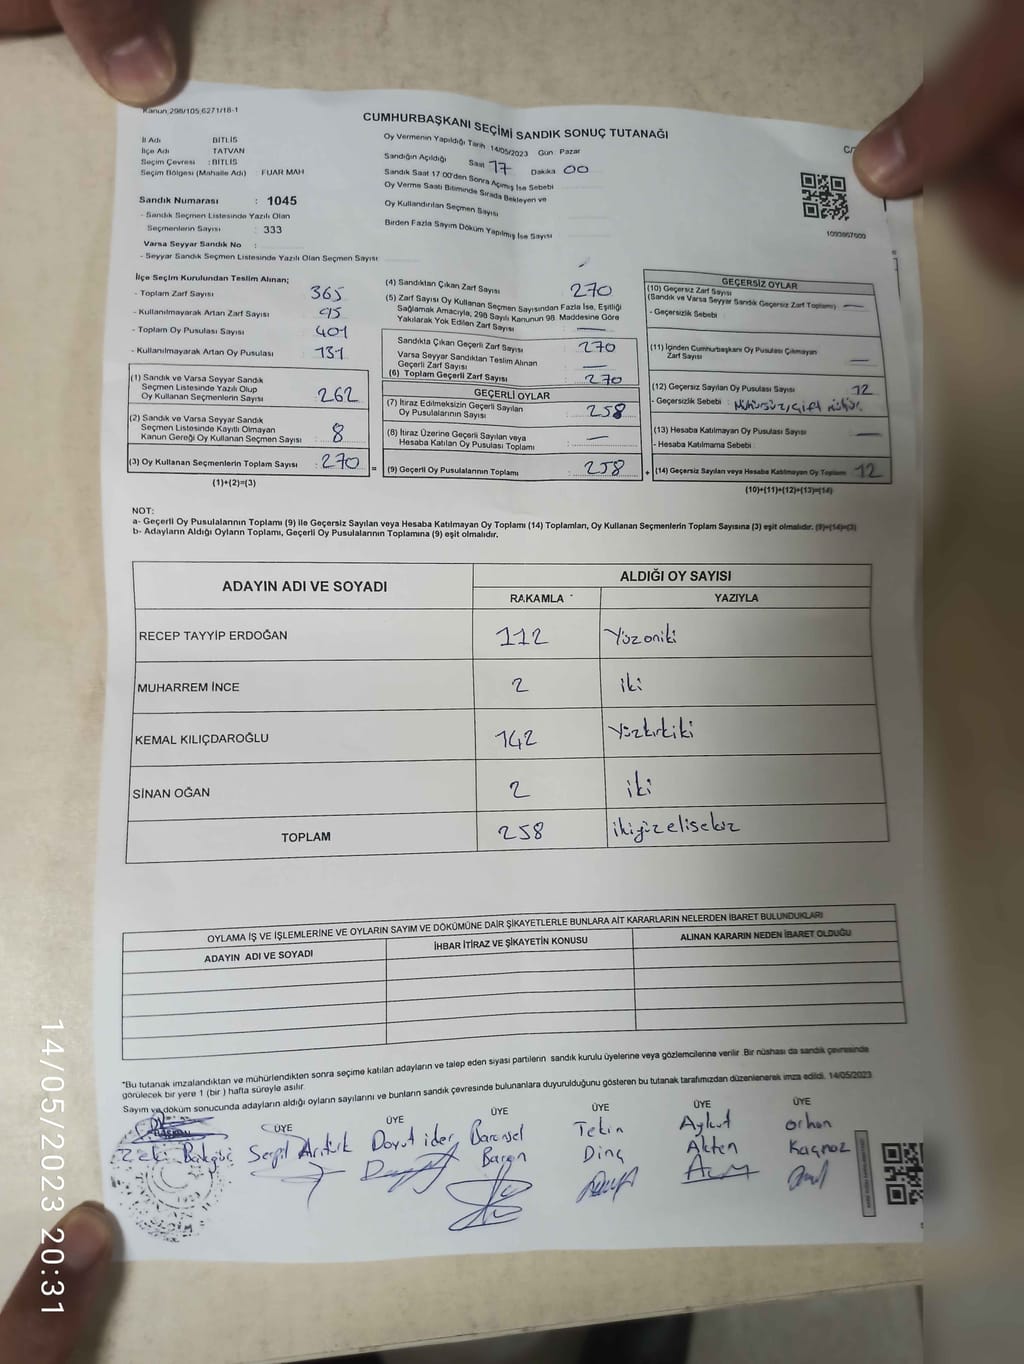 Kanun 298/105 6271/18-1
CUMHURBAŞKANI SEÇİMİ SANDIK SONUÇ TUTANAĞI
İl Adı BİTLİS
İlçe Adı TATVAN
Seçim Çevresi : BİTLİS
Seçim Bölgesi (Mahalle Adı) : FUAR MAH
Sandık Numarası : 1045
- Sandık Seçmen Listesinde Yazılı Olan
Seçmenlerin Sayısı : 333
Varsa Seyyar Sandık No :
- Seyyar Sandık Seçmen Listesinde Yazılı Olan Seçmen Sayısı
Oy Vermenin Yapıldığı Tarih 14/05/2023 Gün Pazar
Sandığın Açıldığı Saat 17 Dakika 00
Sandık Saat 17:00'den Sonra Açılmış İse Sebebi
Oy Verme Saati Bitiminde Sırada Bekleyen ve
Oy Kullandırılan Seçmen Sayısı
Birden Fazla Sayım Döküm Yapılmış İse Sayısı
1093967600
İlçe Seçim Kurulundan Teslim Alınan;
- Toplam Zarf Sayısı 365
- Kullanılmayarak Artan Zarf Sayısı 95
- Toplam Oy Pusulası Sayısı 401
- Kullanılmayarak Artan Oy Pusulası 131
(1) Sandık ve Varsa Seyyar Sandık
Seçmen Listesinde Yazılı Olup
Oy Kullanan Seçmenlerin Sayısı : 262
(2) Sandık ve Varsa Seyyar Sandık
Seçmen Listesinde Kayıtlı Olmayan
Kanun Gereği Oy Kullanan Seçmen Sayısı : 8
(3) Oy Kullanan Seçmenlerin Toplam Sayısı : 270 =
(1)+(2)=(3)
(4) Sandıktan Çıkan Zarf Sayısı 270
(5) Zarf Sayısı Oy Kullanan Seçmen Sayısından Fazla İse, Eşitliği
Sağlamak Amacıyla, 298 Sayılı Kanunun 98. Maddesine Göre
Yakılarak Yok Edilen Zarf Sayısı : —
Sandıkta Çıkan Geçerli Zarf Sayısı : 270
Varsa Seyyar Sandıktan Teslim Alınan
Geçerli Zarf Sayısı : —
(6) Toplam Geçerli Zarf Sayısı : 270
GEÇERLİ OYLAR
(7) İtiraz Edilmeksizin Geçerli Sayılan
Oy Pusulalarının Sayısı : 258
(8) İtiraz Üzerine Geçerli Sayılan veya
Hesaba Katılan Oy Pusulası Toplamı : —
(9) Geçerli Oy Pusulalarının Toplamı : 258 +
GEÇERSİZ OYLAR
(10) Geçersiz Zarf Sayısı
(Sandık ve Varsa Seyyar Sandık Geçersiz Zarf Toplamı) : —
- Geçersizlik Sebebi :
(11) İçinden Cumhurbaşkanı Oy Pusulası Çıkmayan
Zarf Sayısı : —
(12) Geçersiz Sayılan Oy Pusulası Sayısı : 12
- Geçersizlik Sebebi : Mühürsüz, çift mühür.
(13) Hesaba Katılmayan Oy Pusulası Sayısı : —
- Hesaba Katılmama Sebebi :
(14) Geçersiz Sayılan veya Hesaba Katılmayan Oy Toplamı 12
(10)+(11)+(12)+(13)=(14)
NOT:
a- Geçerli Oy Pusulalarının Toplamı (9) ile Geçersiz Sayılan veya Hesaba Katılmayan Oy Toplamı (14) Toplamları, Oy Kullanan Seçmenlerin Toplam Sayısına (3) eşit olmalıdır. (9)+(14)=(3)
b- Adayların Aldığı Oyların Toplamı, Geçerli Oy Pusulalarının Toplamına (9) eşit olmalıdır.
ADAYIN ADI VE SOYADI ALDIĞI OY SAYISI
RAKAMLA YAZIYLA
RECEP TAYYİP ERDOĞAN 112 Yüzoniki
MUHARREM İNCE 2 iki
KEMAL KILIÇDAROĞLU 142 Yüzkırkiki
SİNAN OĞAN 2 iki
TOPLAM 258 ikiyüzelisekiz
OYLAMA İŞ VE İŞLEMLERİNE VE OYLARIN SAYIM VE DÖKÜMÜNE DAİR ŞİKAYETLERLE BUNLARA AİT KARARLARIN NELERDEN İBARET BULUNDUKLARI
ADAYIN ADI VE SOYADI İHBAR İTİRAZ VE ŞİKAYETİN KONUSU ALINAN KARARIN NEDEN İBARET OLDUĞU
"Bu tutanak imzalandıktan ve mühürlendikten sonra seçime katılan adayların ve talep eden siyasi partilerin sandık kurulu üyelerine veya gözlemcilerine verilir. Bir nüshası da sandık çevresinde
görülecek bir yere 1 (bir) hafta süreyle asılır.
Sayım ve döküm sonucunda adayların aldığı oyların sayılarını ve bunların sandık çevresinde bulunanlara duyurulduğunu gösteren bu tutanak tarafımızdan düzenlenerek imza edildi. 14/05/2023
BAŞKAN ÜYE ÜYE ÜYE ÜYE ÜYE ÜYE
Zeki
Serpil Arıtürk
Davut ider
Baransel
Baran
Tekin
Dinç
Aykut
Akten
Orhan
Kaçmaz
14/05/2023 20:31